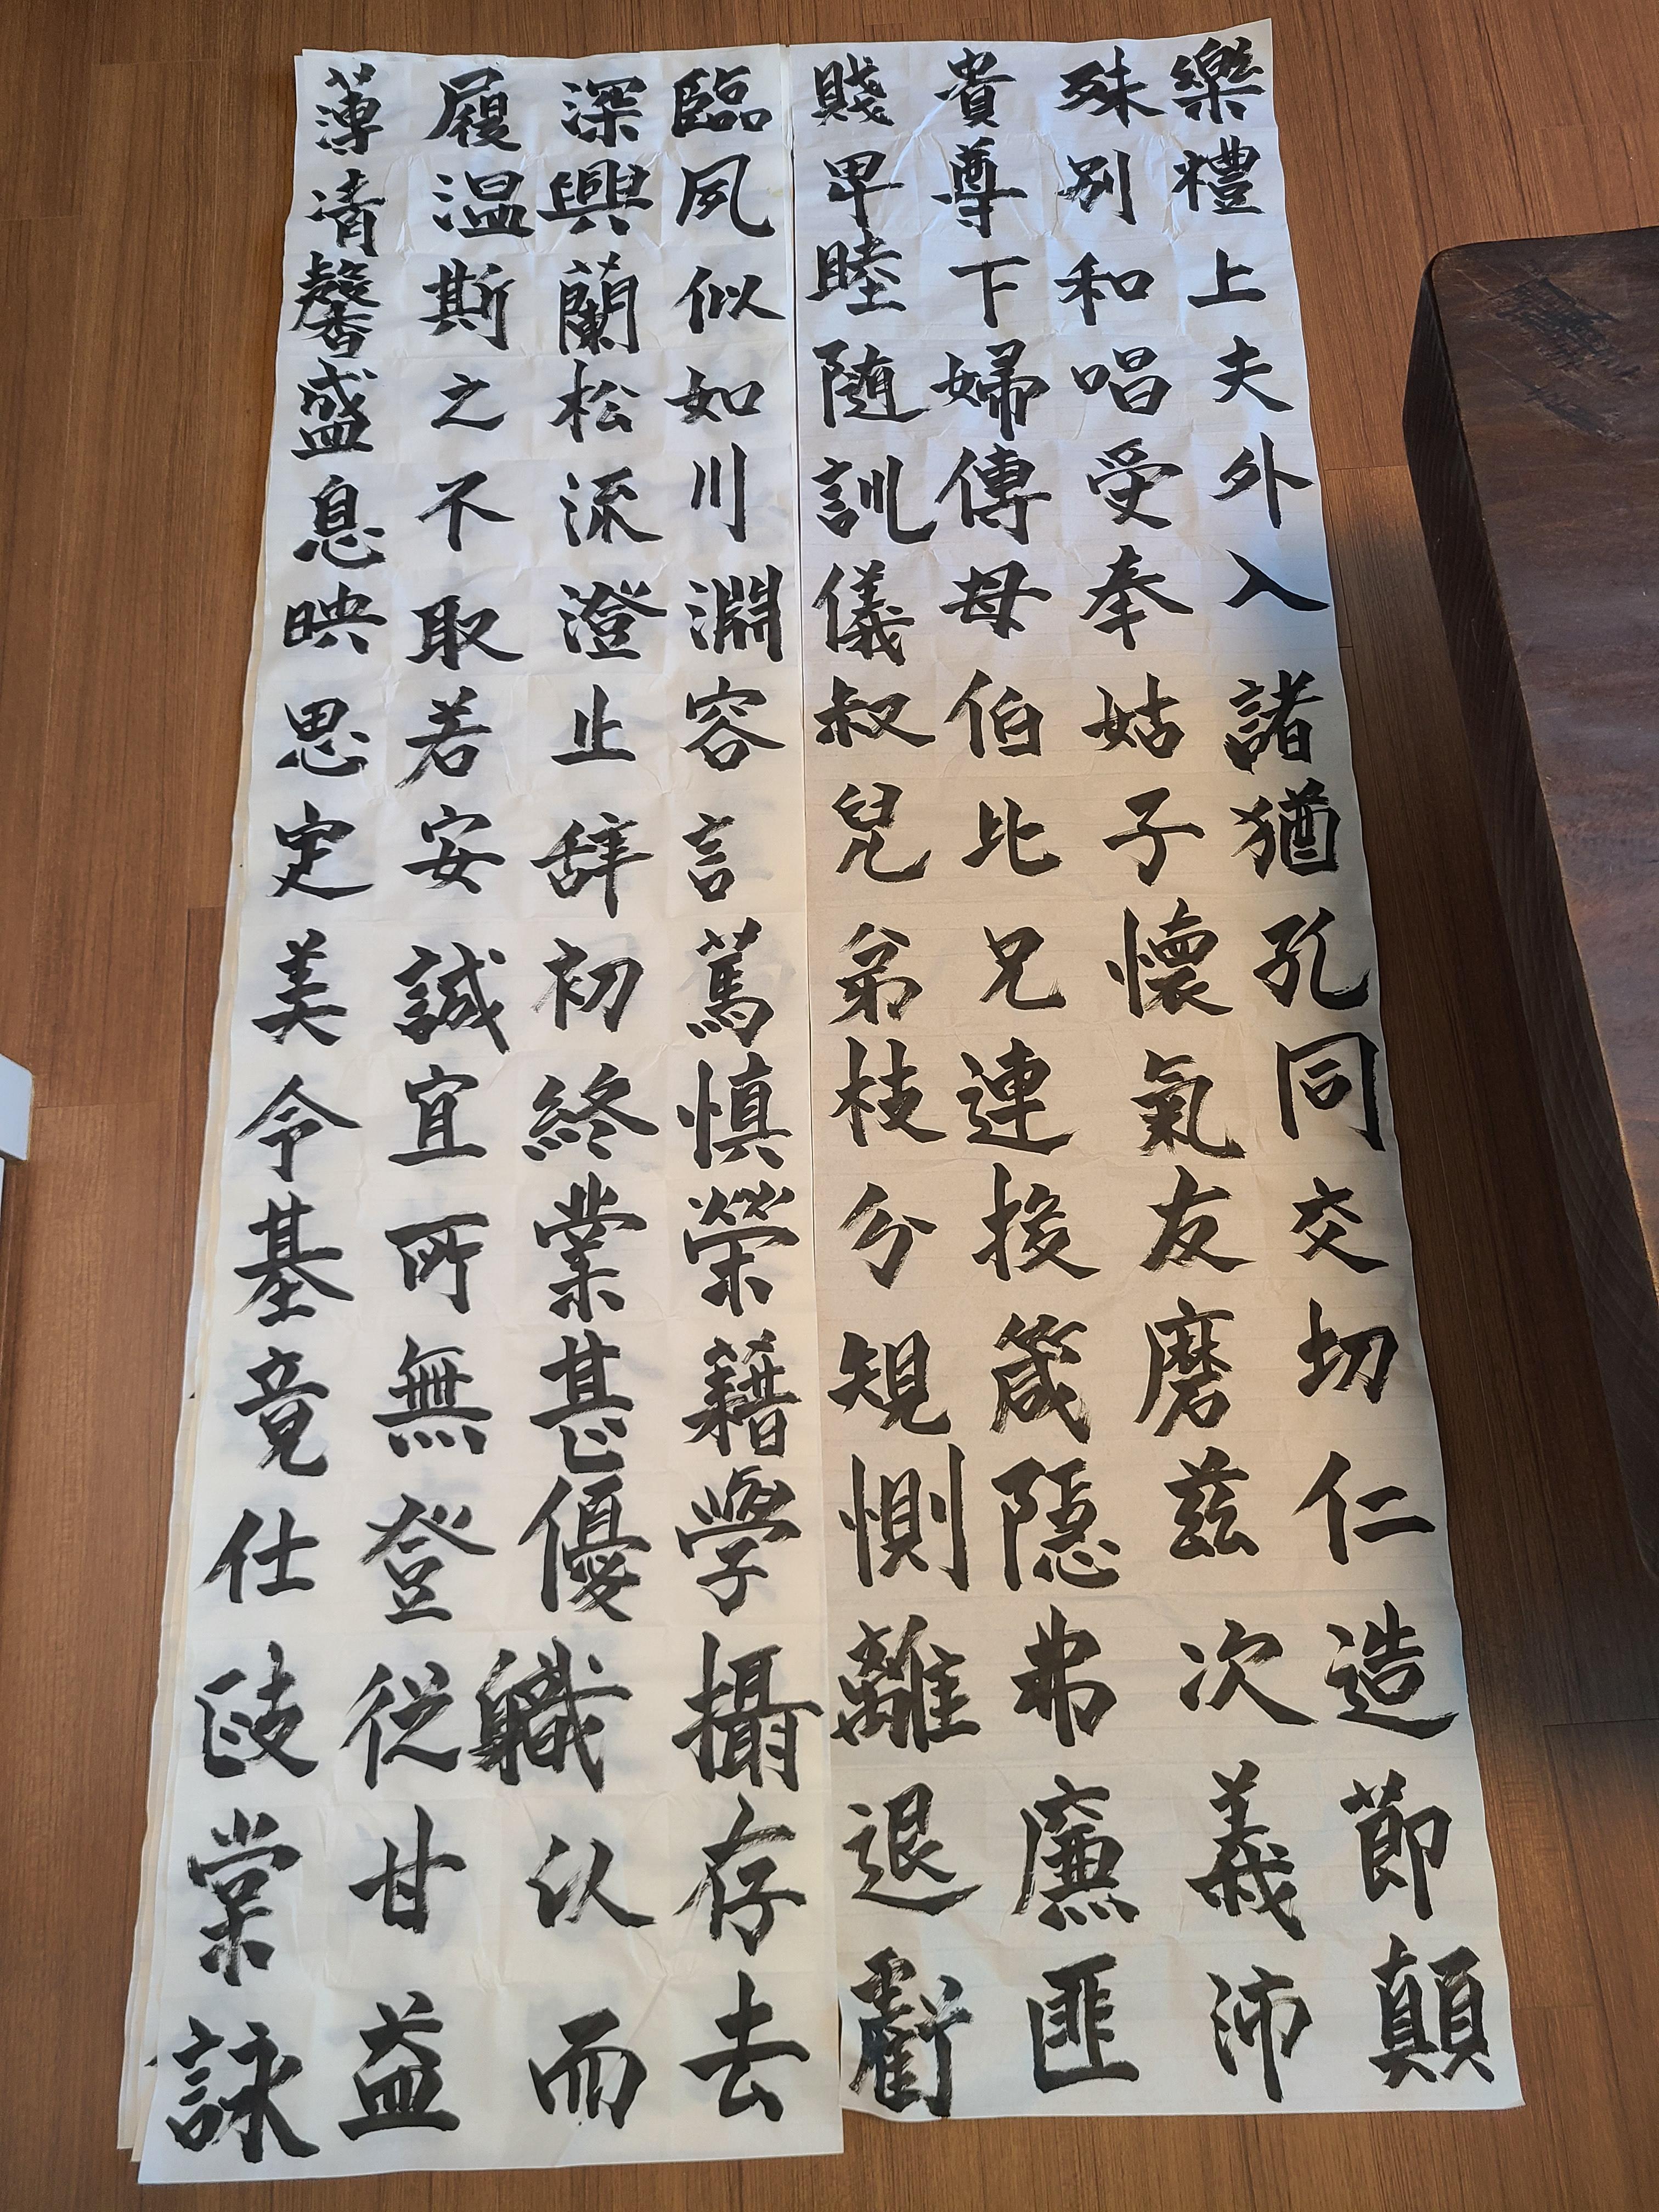 臨深履薄
夙興温清
似蘭斯馨
如松之盛
川流不息
淵澄取映
容止若思
言辞安定
篤初誠美
慎終宜令
榮業所基
籍甚無竟
學優登仕
攝職従政
存以甘棠
去而益詠
樂殊貴賤
禮別尊卑
上和下睦
夫唱婦随
外受傅訓
入奉母儀
諸姑伯叔
猶子比兒
孔懷兄弟
同氣連枝
交友投分
切磨箴規
仁茲隠惻
造次弗離
節義廉退
顛沛匪虧